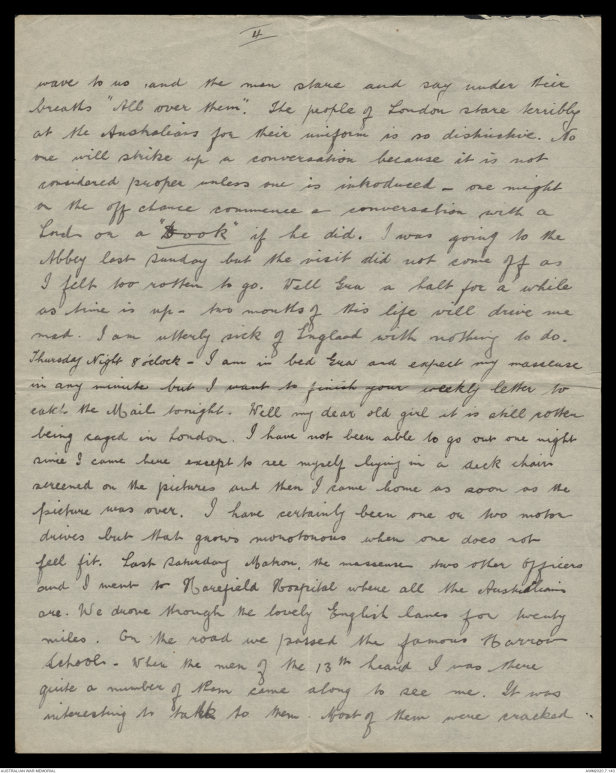 4
wave to us, and the men stare and say under their
breaths "All over them". The people of London stare terribly
at the Australians for their uniform is so distinctive. No
one will strike up a conversation because it is not
considered proper unless one is introduced - one might
on the off chance commence a conversation with a
Lord or a "Dook" if he did. I was going to the
Abbey last Sunday but the visit did not come off as
I felt too rotten to go. Well Eva a halt for a while
as time is up - two months of this life will drive me
mad. I am utterly sick of England with nothing to do.
Thursday Night 8 o'clock - I am in bed Eva and expect my masseuse
in any minute but I want to finish your weekly letter to
catch the Mail tonight. Well my dear old girl it is still rotten
being caged in London. I have not been able to go out one night
since I came here except to see myself lying in a deck chair
screened on the pictures and then I came home as soon as the
picture was over. I have certainly been one or two motor
drives but that grows monotonous when one does not
feel fit. Last Saturday Matron, the masseuse two other Officers
and I went to Harefield Hospital where all the Australians
are. We drove through the lovely English lanes for twenty
miles. On the road we passed the famous Harrow
Schools - When the men of the 13th heard I was there
quite a number of them came along to see me. It was
interesting to talk to them. Most of them were cracked
AUSTRALIAN WAR MEMORIAL